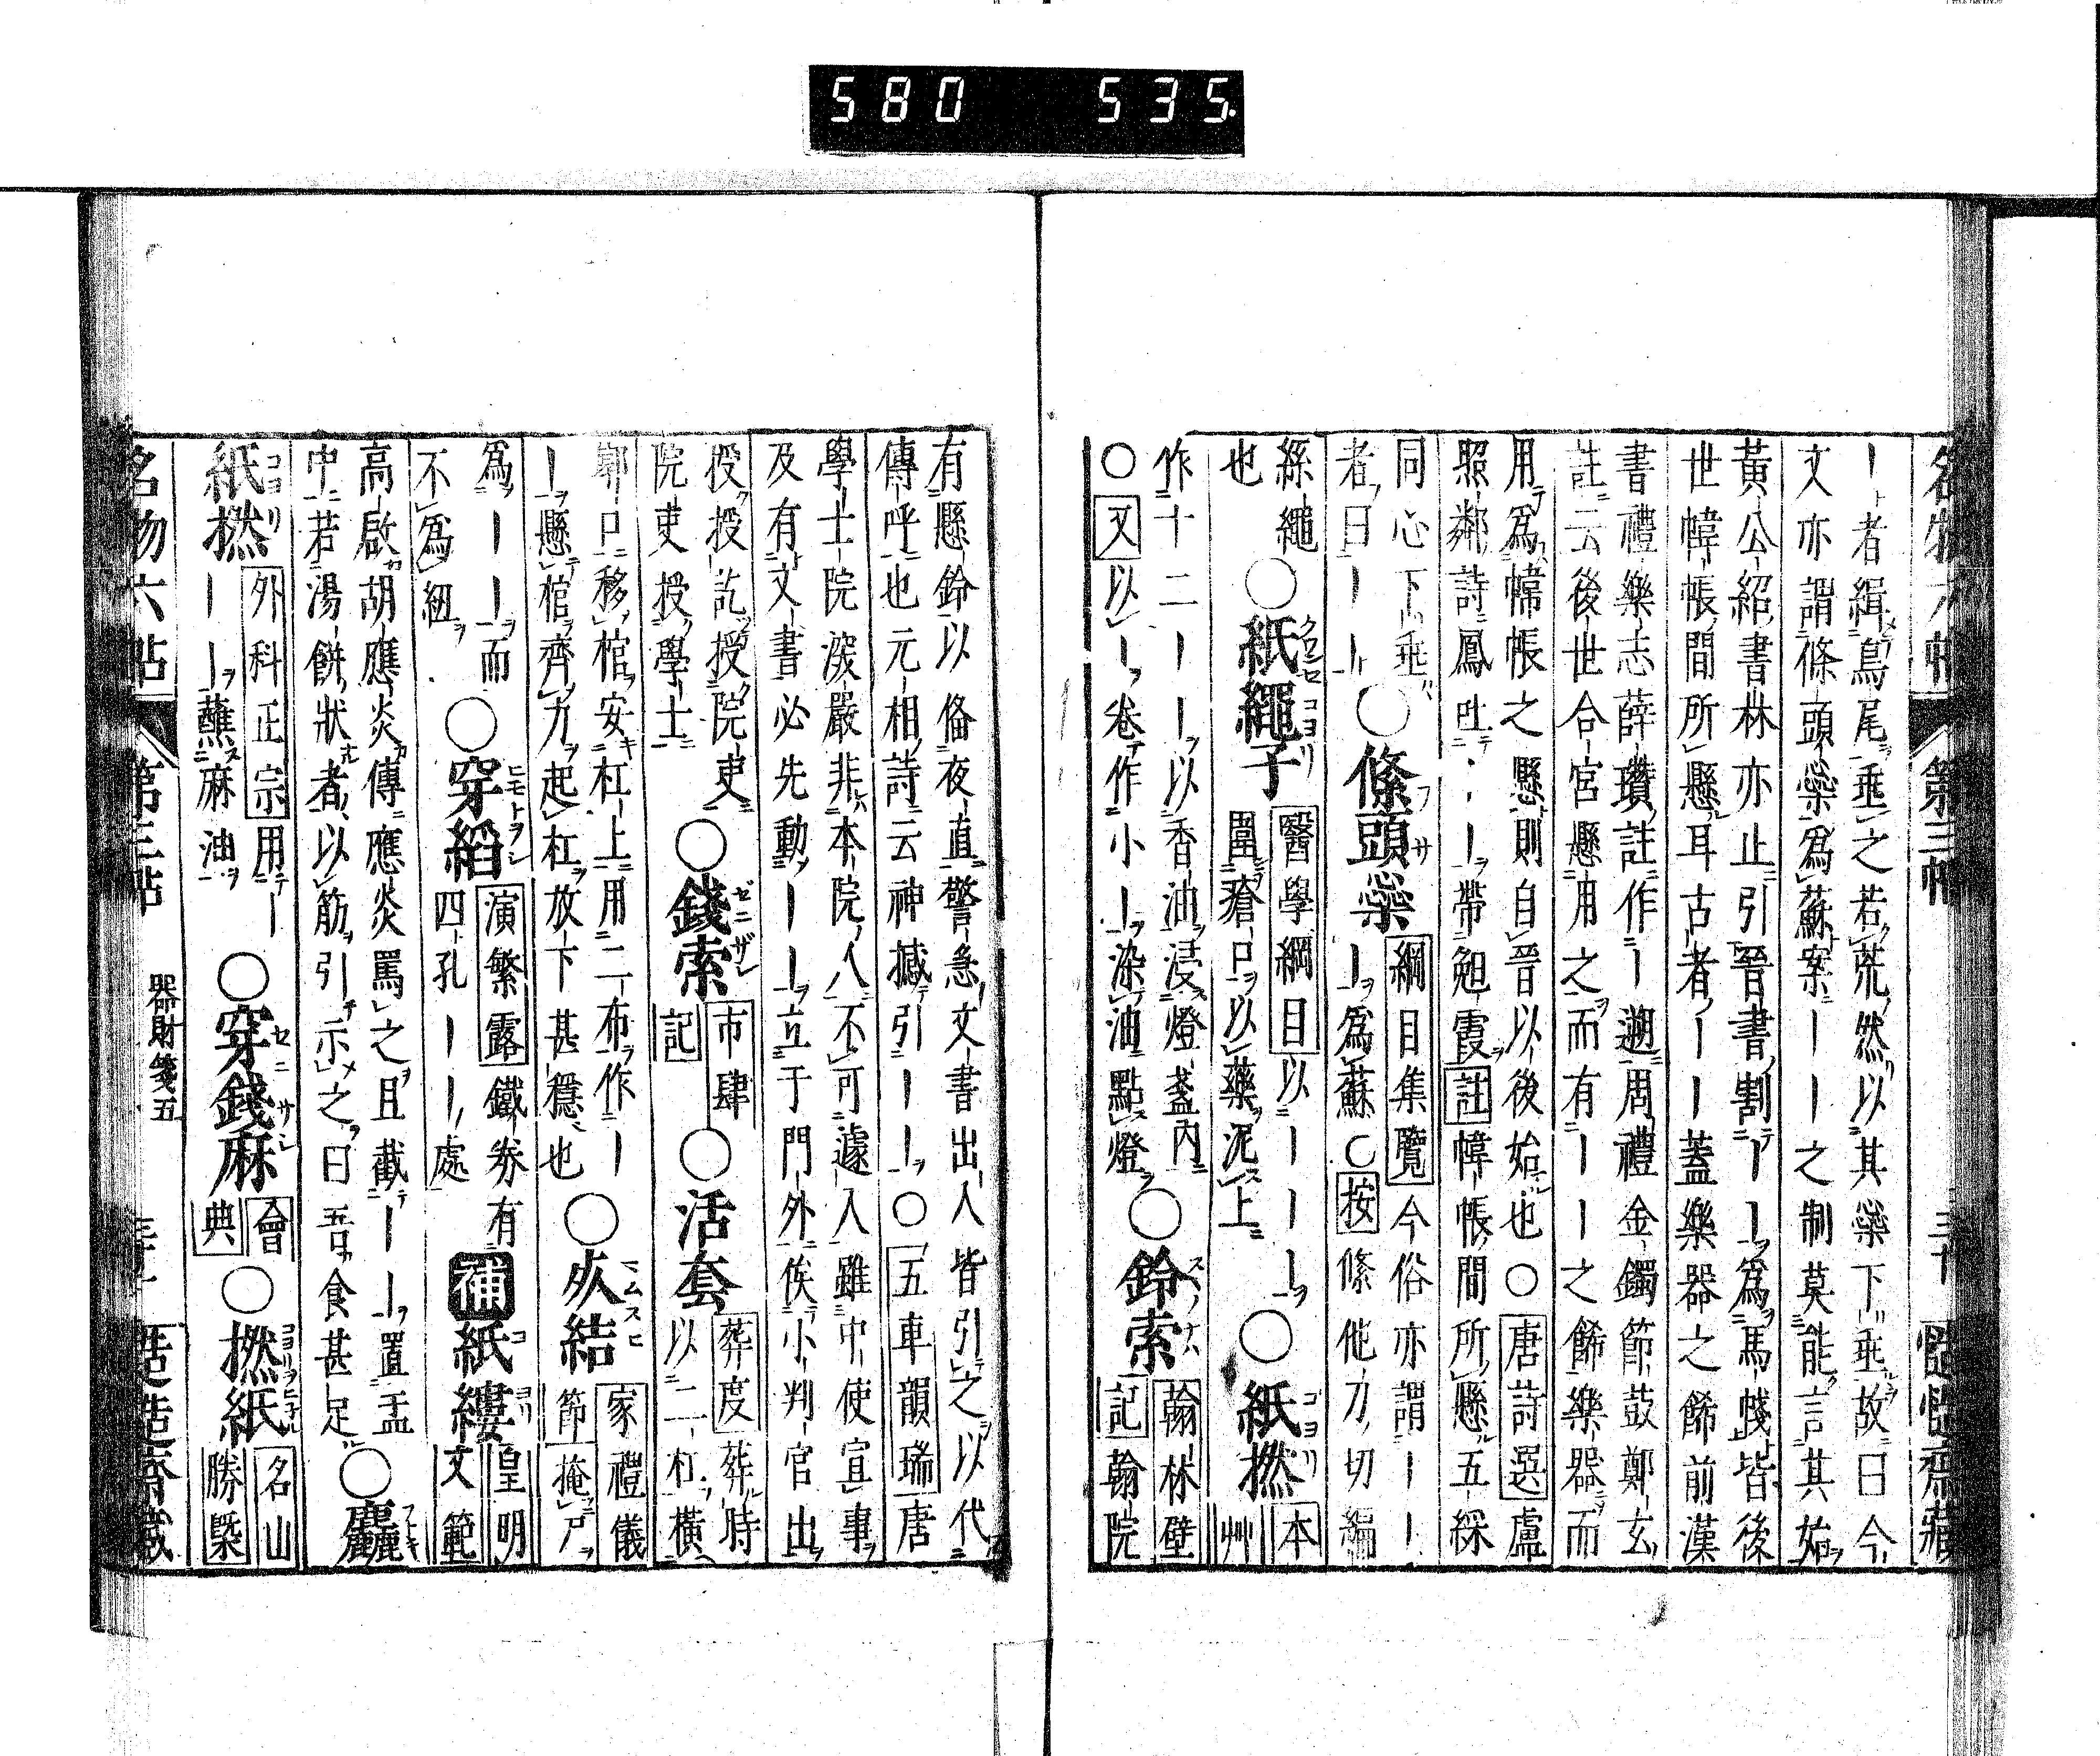 580 535.
名物六帖 第三帖 三十 慥慥齋藏
｜者緝鳥尾垂之若流然以其蘂下垂故曰今
文亦謂條頭蘂爲蘇案｜｜之制莫能言其始
黃公紹書林亦止引晉書割｜｜爲馬幰皆後
世幃帳間所懸耳古者｜｜蓋樂器之餙前漢
書禮樂志薛瓚註作｜遡周禮金鐲節鼓鄭玄
註云後世合宮懸用之而有｜｜之餙樂器而
用爲幃帳之懸則自晉以後始也○唐詩選盧
照鄰詩鳳吐‥｜帶䖝霞註幃帳間所懸五綵
同心下垂○絛頭蘂 綱目集覽今俗亦謂｜｜
者曰｜｜ ｜爲蘇○按絛他刀切編
絲繩○紙繩子 醫學綱目以｜｜｜
也 圍瘡口以藥泥上○紙撚 本艸
作十二｜｜以香油浸燈盞內
○又以｜卷作小｜染油點燈○鈴索 翰林壁記翰院
有懸鈴以備夜直警急文書出入皆引之以代
傳呼也元相詩云神撼引｜｜○五車韻瑞唐
學士院深嚴非本院人不可遽入雖中使宣事
及有文書必先動｜｜立于門外俟小判官出
授授訖授院吏○錢索 市肆記○活套 葬度葬時
院吏授學士 以二杠橫
郭口移棺安杠上用二布作｜
｜懸棺齊力起杠放下甚穩也○㚈結 家禮儀節掩尸
爲｜｜而○穿縚 演繁露鐵券有
不爲紐 四孔｜｜處 補紙縷 皇明文範
高啟胡應炎傳應炎罵之且截｜｜置盂
中若湯餅狀者以筋引示之曰吾食甚足○麤
紙撚 外科正宗用｜
｜｜蘸麻油○穿錢麻 會典○撚紙 名山勝槩
名物六帖 第三帖 器財箋五 慥慥齋藏